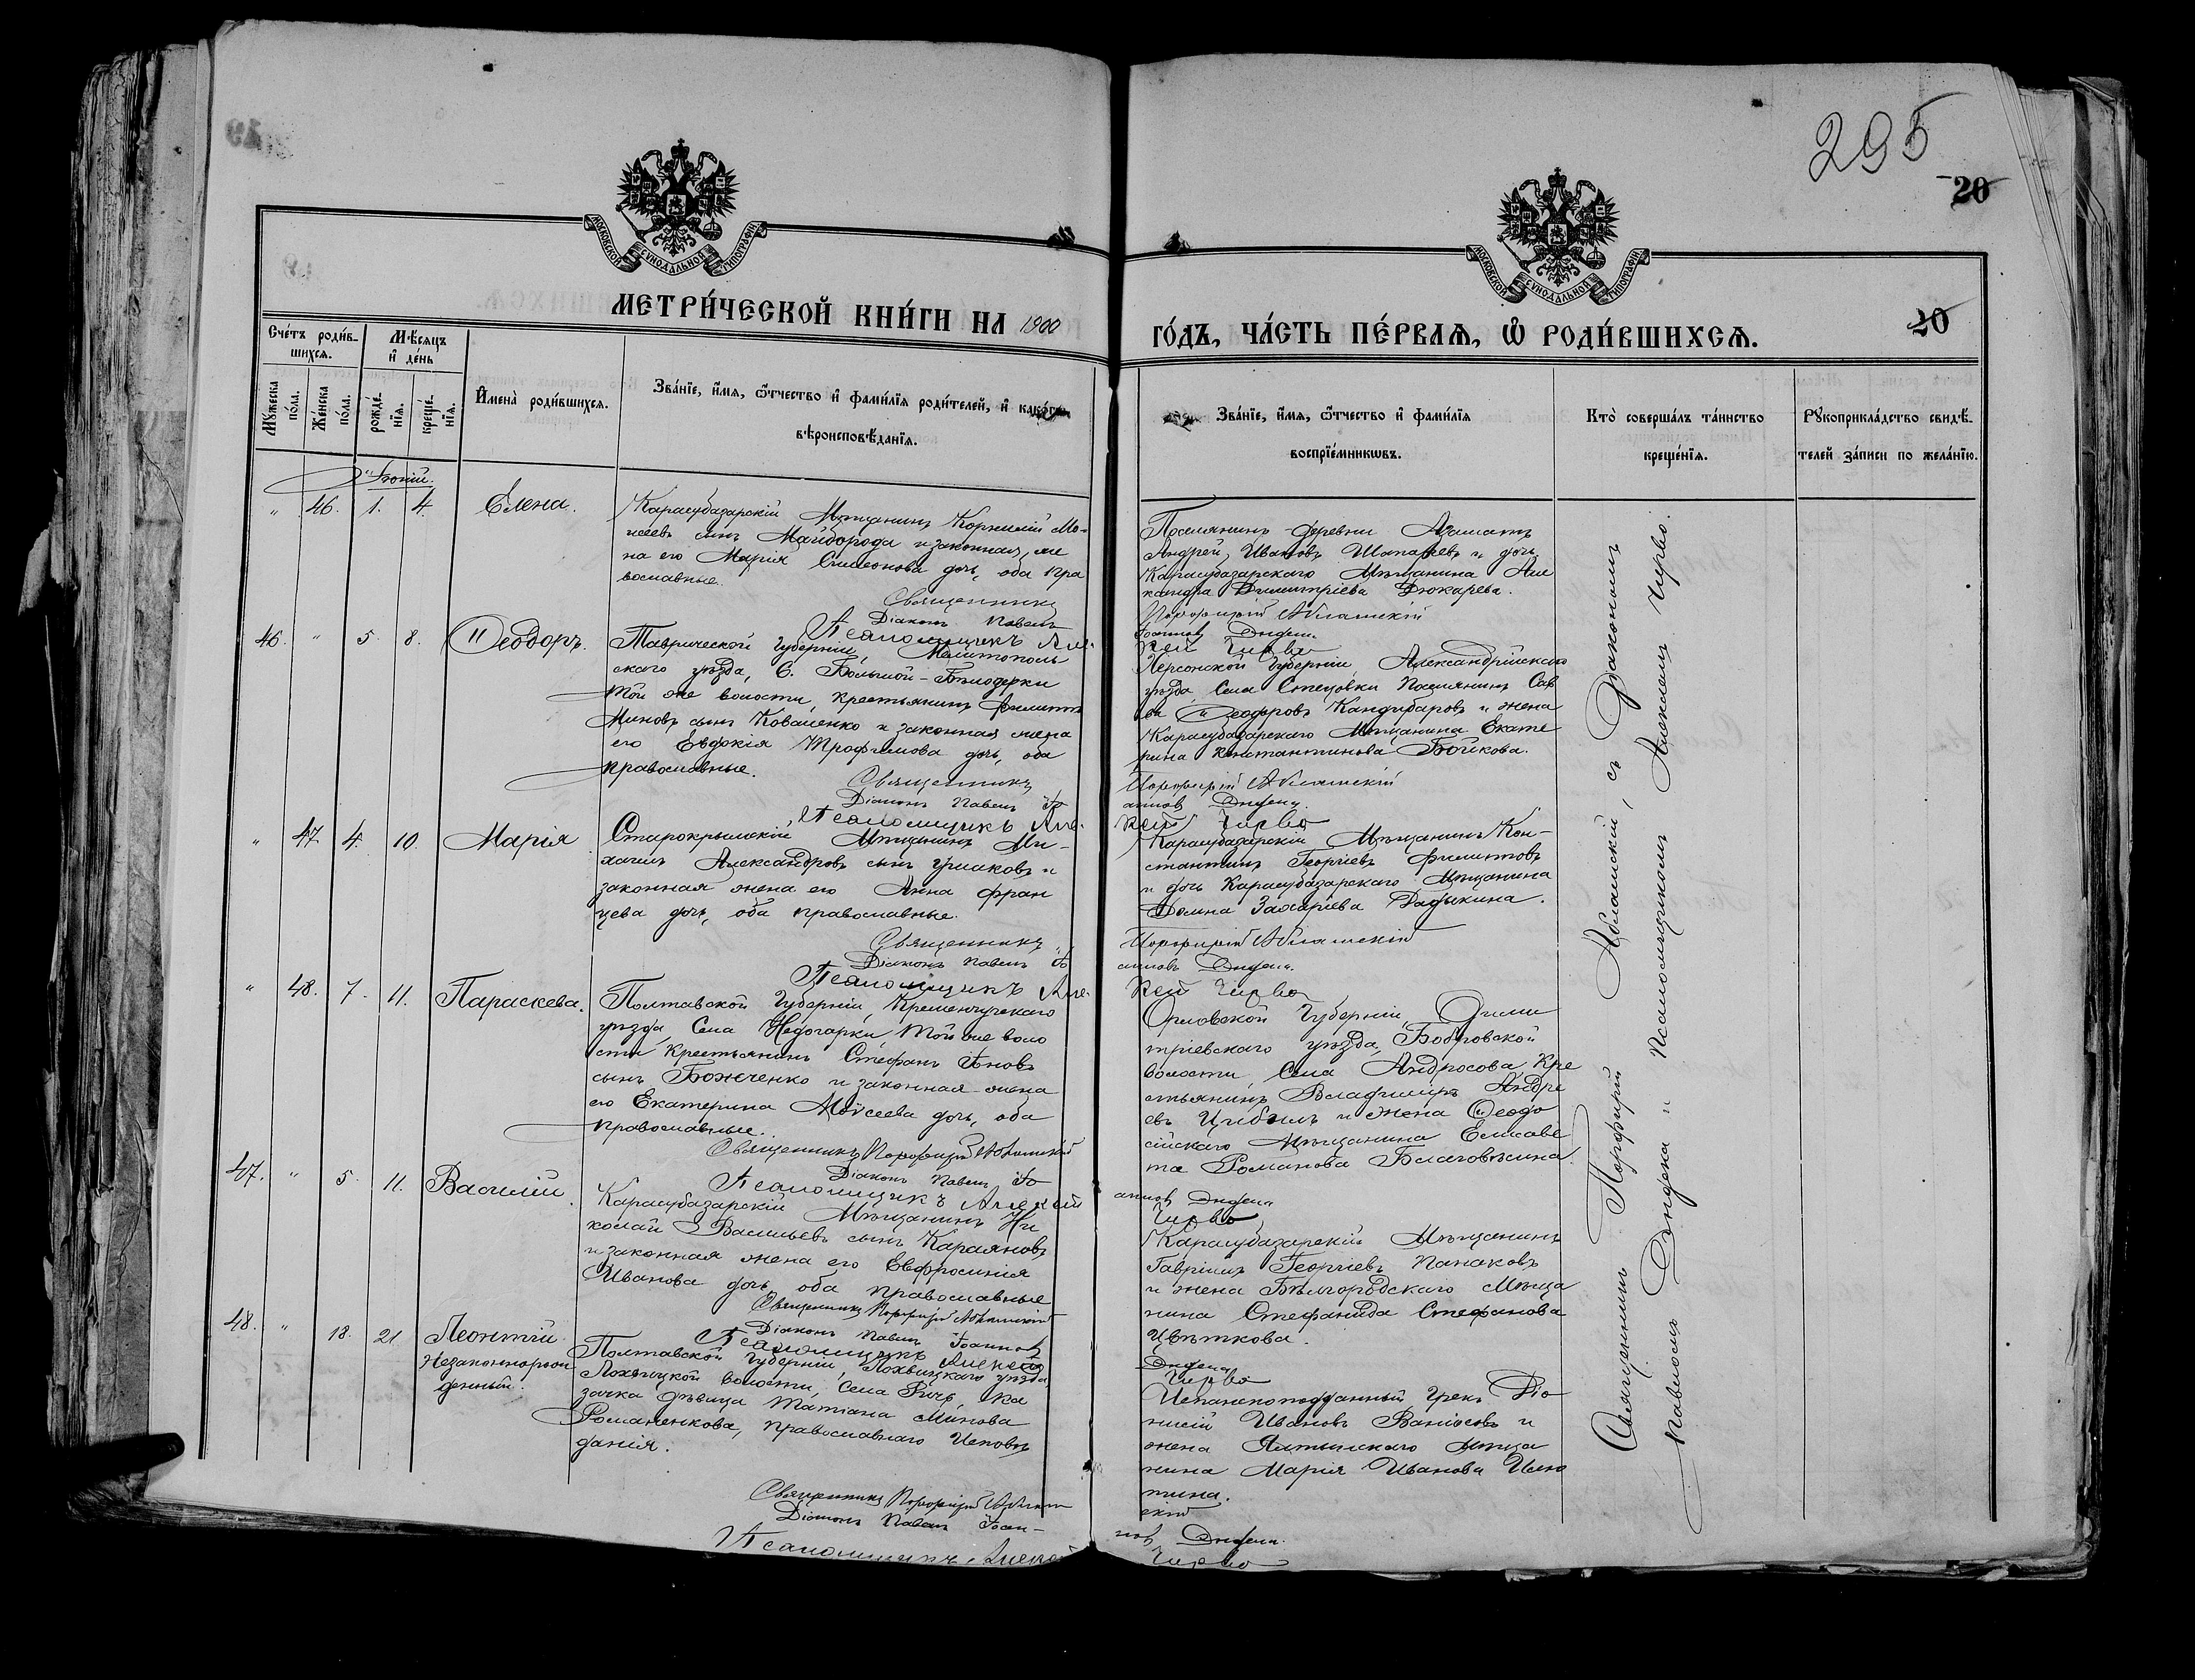 295
20
МОСКОВСКОЙ СѴНОДАЛЬНОЙ ТИПОГРАФІИ
МОСКОВСКОЙ СѴНОДАЛЬНОЙ ТИПОГРАФІИ
МЕТРИ́ЧЕСКОЙ КНИ́ГИ НА 1900
ГО́ДЪ, ЧА́СТЬ ПЕ́РВАѦ, Ѡ РОДИ́ВШИХСѦ.
20
Сче́тъ роди́в-
шихсѧ.
Мѣ́сѧцъ
и҆ де́нь
Мꙋ́жеска
по́ла.
Же́нска
по́ла.
рожде́-
нїѧ.
креще́-
нїѧ.
И҆мена̀ роди́вшихсѧ.
Зва́нїе, и҆́мѧ, ѻ҆́тчество и҆ фами́лїѧ роди́телей, и҆ како́гѡ
вѣроисповѣ́данїѧ.
Зва́нїе, и҆́мѧ, ѻ҆́тчество и҆ фами́лїѧ
воспрїе́мникѡвъ.
Кто̀ соверша́лъ та́инство
креще́нїѧ.
Рꙋкоприкла́дство свидѣ́-
телей за́писи по жела́нїю.
Іюній.
" 46. 1. 4. Елена.
Карасубазарскій Мѣщанинъ Корнилій Мо-
исеевъ сынъ Майборода и законная же
на его Марія Симеонова дочь, оба пра
вославные.
Священникъ
Діаконъ Павелъ
Псаломщикъ Але-
Поселянинъ деревни Азаматъ
Андрей Ивановъ и дочь
Карасубазарскаго Мѣщанина Але
ксандра Димитріева Дюкарева.
Порфирій Аблашскій
Іоанновъ Дидена
ксей Чирво
46. " 5. 8. Ѳеодоръ.
Таврической Губерніи, Мелитополь
скаго уѣзда, С. Большой-Бѣлозерки
той же волости, крестьянинъ Филиппъ
Миновъ сынъ Коваленко и законная жена
его Евдокія Трофимова дочь, оба
православные.
Священникъ
Діаконъ Павелъ Іо
Псаломщикъ Але-
Херсонской Губерніи Александрійскаго
уѣзда Села Стецовки Поселянинъ Сав
ва Ѳеодоровъ Кандыбаровъ и жена
Карасубазарскаго Мѣщанина Екате
рина Константинова Бойкова.
Порфирій Аблашскій
анновъ Дидена
ксей Чирво
" 47 4. 10. Марія
Старокрымскій Мѣщанинъ Ми-
хаилъ Александровъ сынъ Ушаковъ и
законная жена его Анна Фран
цева дочь, оба православные.
Священникъ
Діаконъ Павелъ Іо
Псаломщикъ Але-
Карасубазарскій Мѣщанинъ Кон-
стантинъ Георгіевъ Филиповъ
и дочь Карасубазарскаго Мѣщанина
Домна Захаріева Дадыкина.
Порфирій Аблашскій
анновъ Дидена
ксей Чирво
" 48. 7. 11. Параскева.
Полтавской Губерніи, Кременчугскаго
уѣзда, Села Недогарки, Той же воло
сти, Крестьянинъ Стефанъ
сынъ Божченко и законная жена
его Екатерина Моѵсеева дочь, оба
православные.
Священникъ Порфирій Аблашскій
Діаконъ Павелъ Іо
Псаломщикъ Алексей
Орловской Губерніи Дими
тріевскаго уѣзда, Бобровской
волости, Села Андросова, Кре
стьянинъ Владиміръ Андре
евъ и жена Ѳеодо
сійскаго Мѣщанина Елисаве
та Романова
анновъ Дидена
Чирво
47. " 5. 11. Василій.
Карасубазарскій Мѣщанинъ Ни
колай Васильевъ сынъ Караяновъ
и законная жена его Евфросинія
Иванова дочь, оба православные
Священникъ Порфирій Аблашскій
Діаконъ Павелъ Іоаннов
Псаломщикъ Алексей
Карасубазарскій Мѣщанинъ
Гавріилъ Георгіевъ Панаковъ
и жена Бѣлгородскаго Мѣща
нина Стефанида Стефанова
Цвѣткова.
Дидена
Чирво
48. " 18. 21. Леонтій
Незаконнорож
денный.
Полтавской Губерніи, Лохвицкаго уѣзда,
Лохвицкой волости, Села Ка
зачка дѣвица Татіана Минова
Романенкова, православнаго Исповѣ
данія.
Священникъ Порфирій Аблаш
Діаконъ Павелъ Іоан-
Псаломщикъ Алексей
Грекъ Діо
нисій Ивановъ и
жена Ялтинскаго Мѣща
нина Марія Иванова Илю
шина.
скій
нов Дидена
Чирво
Священникъ Порфирій Аблашскій, съ Діакономъ
Павломъ Дидена и Псаломщикомъ Алексеемъ Чирво.